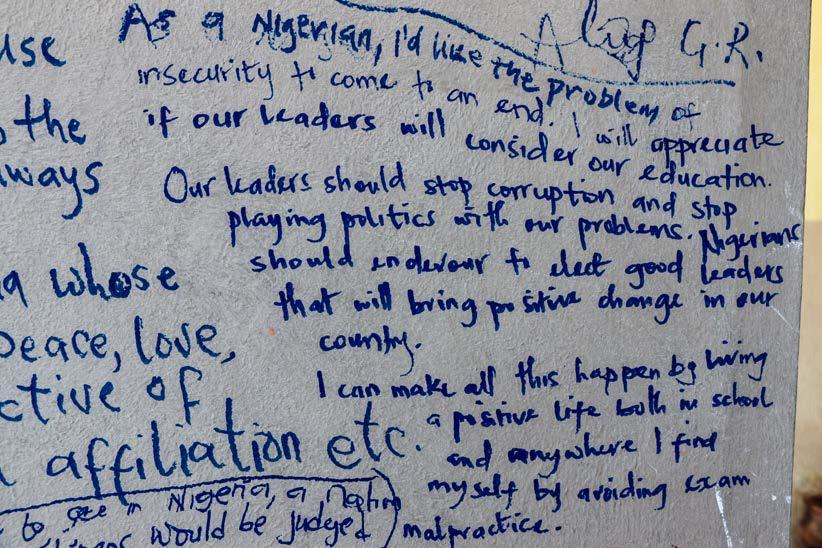 use
the
ways
a whose
peace, love,
ctive of
affiliation etc.
to see in Nigeria, a nation
would be judged
G.R.
As a Nigerian, I'd like the problem of
insecurity to come to an end. I will appreciate
if our leaders will consider our education.
Our leaders should stop corruption and stop
playing politics with our problems. Nigerians
should endevour to elect good leaders
that will bring positive change in our
country.
I can make all this happen by living
a positive life both in school
and anywhere I find
myself by avoiding exam
malpractice.